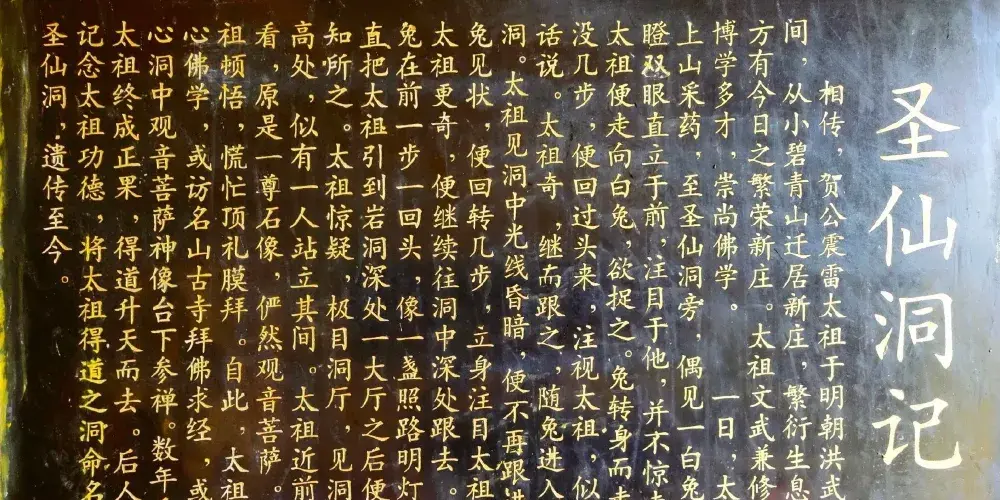 圣仙洞记
相传,贺公震雷太祖于明朝洪武
间,从小碧青山迁居新庄,繁衍生息
方有今日之繁荣新庄。太祖文武兼修
博学多才,崇尚佛学。一日,太
上山采药,至圣仙洞旁,偶见一白兔
瞪双眼直立于前,注目于他,并不惊
太祖便走向白兔,欲捉之。兔转身而
没几步,便回过头来,注视太祖,似
话说。太祖奇,继而跟之,随兔进入
洞。太祖见洞中光线昏暗,便不再跟
兔见状,便回转几步,立身注目太祖
太祖更奇,便继续往洞中深处跟去。
兔在前一步一回头,像一盏照路明灯
直把太祖引到岩洞深处一大厅之后便
知所之。太祖惊疑,极目洞厅,见洞
高处,似有一人站立其间。太祖近前
看,原是一尊石像,俨然观音菩萨。
祖顿悟,慌忙顶礼膜拜。自此,太祖
心佛学,或访名山古寺拜佛求经,或
心洞中观音菩萨神像台下参禅。数年
太祖终成正果,得道升天而去。后人
记念太祖功德,将太祖得道之洞命名
圣仙洞,遗传至今。